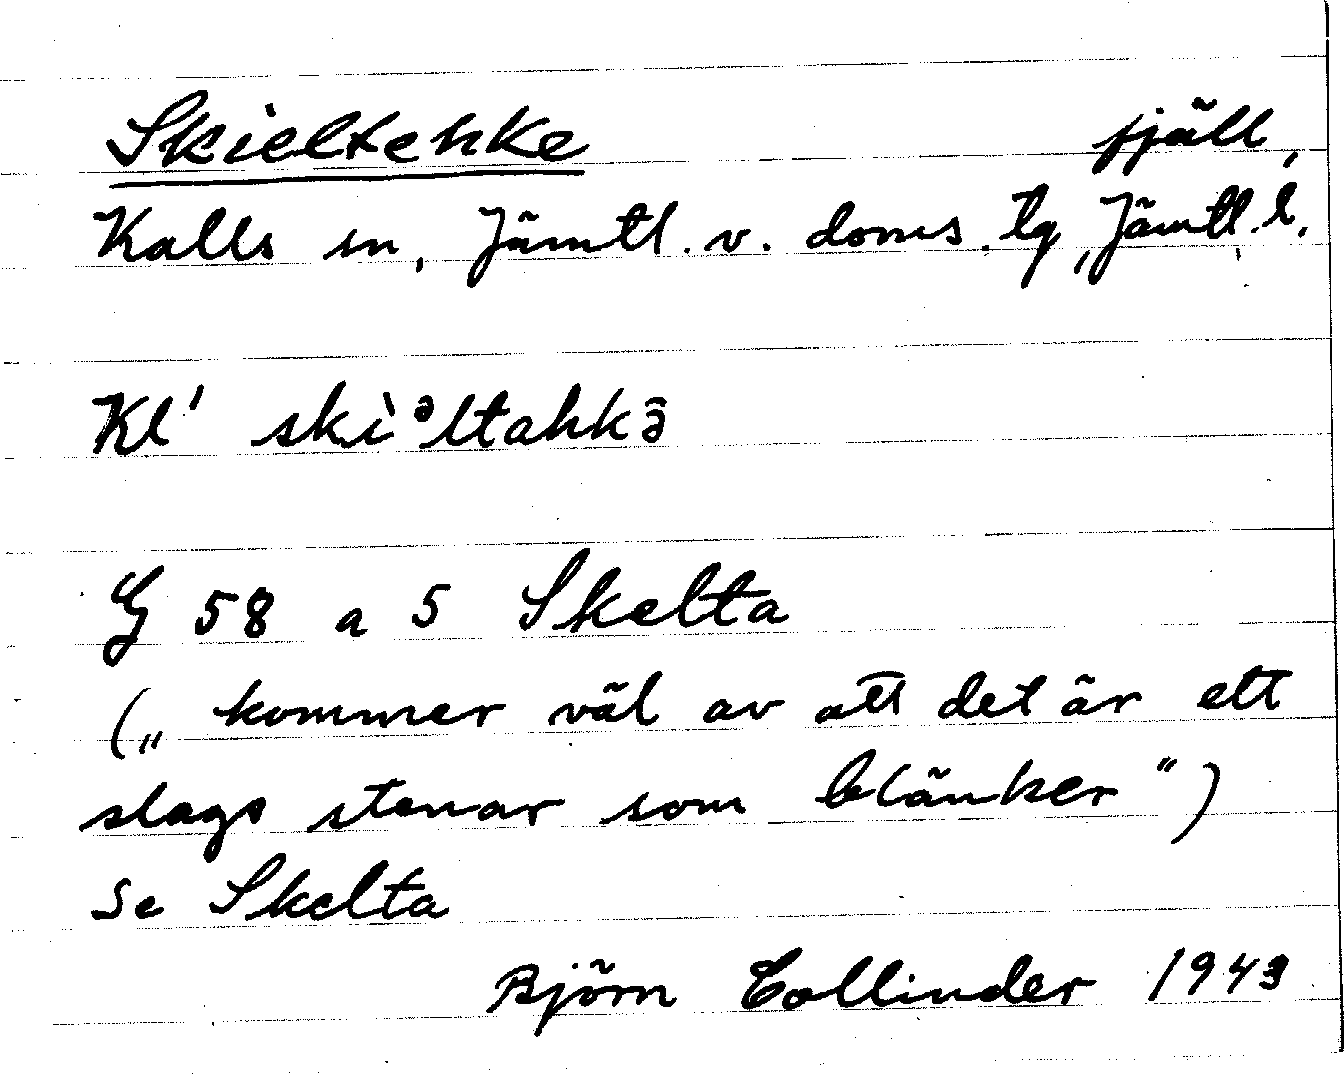 Skieltehke fjäll,
Kalls sn, Jämtl. v. doms. tg, Jämtl. l.
Kl' ski`ᵊltahkə̑
G 58 a 5 Skelta
(„ kommer väl av att det är ett
slags stenar som blänker")
Se Skelta
Björn Collinder 1943